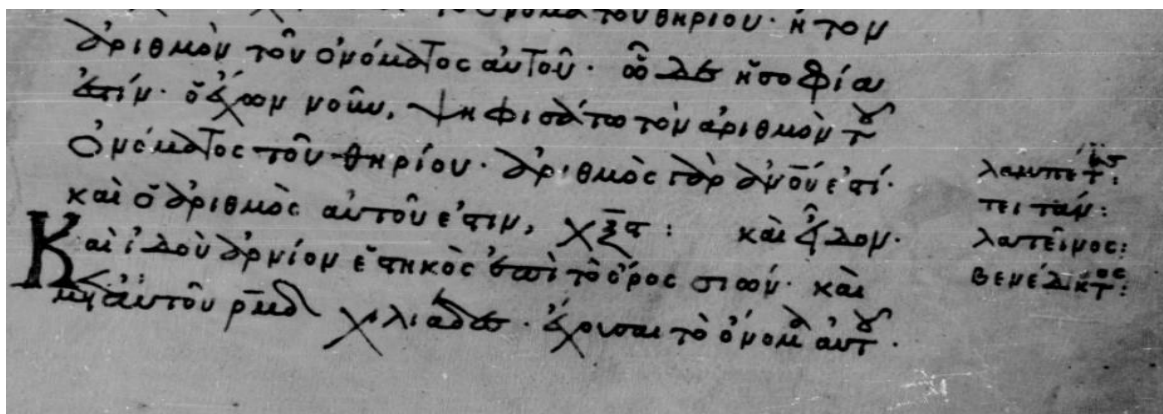 τὸ ὄνομα τοῦ θηρίου· ἢ τὸν
ἀριθμὸν τοῦ ὀνόματος αὐτοῦ· ὧδε ἡ σοφία
ἐστίν· ὁ ἔχων νοῦν, ψηφισάτω τὸν ἀριθμὸν τοῦ
ὀνόματος τοῦ θηρίου· ἀριθμὸς γὰρ ἀνο̅υ̅ ἐστί·
καὶ ὁ ἀριθμὸς αὐτοῦ ἐστιν, χξϛ: καὶ εἶδον·
Καὶ ἰδοὺ ἀρνίον ἑστηκὸς ἐπὶ τὸ ὄρος σιών· καὶ
μετ' αὐτοῦ ρμδ χιλιάδες· ἔχουσαι τὸ ὄνομα αὐτοῦ·
τειτάν:
λατεῖνος:
βενέδικτος: